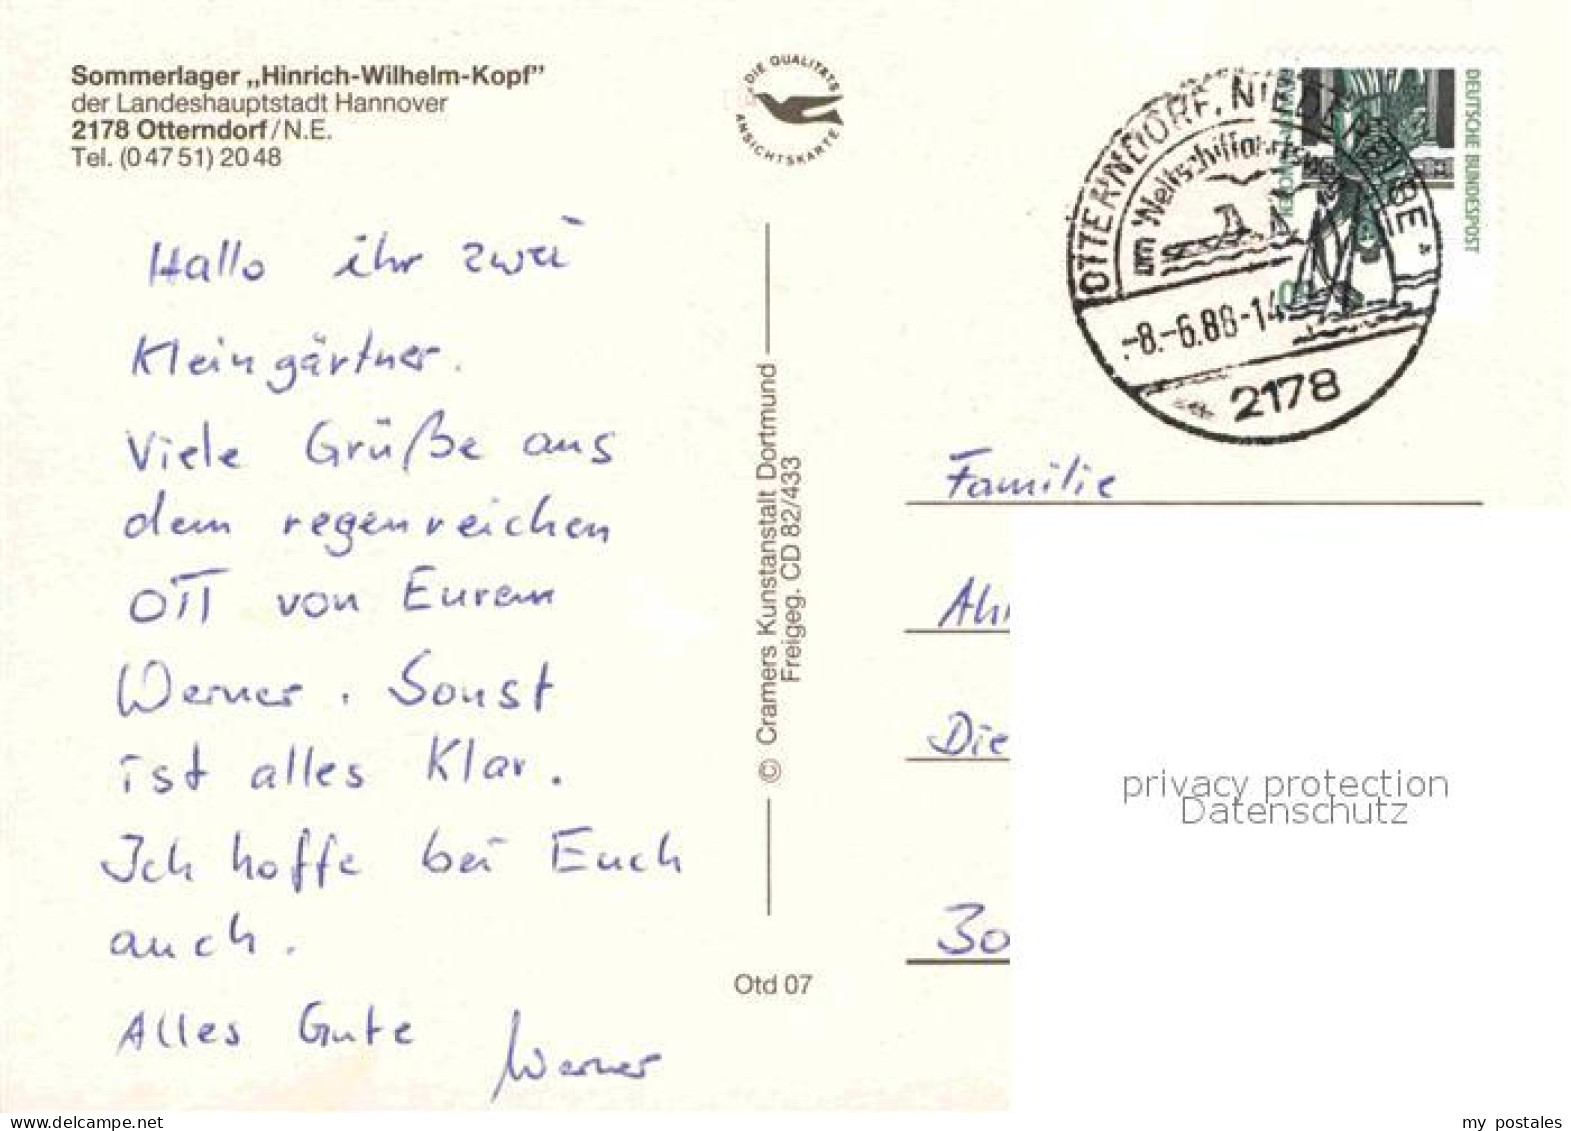 Sommerlager „Hinrich-Wilhelm-Kopf”
der Landeshauptstadt Hannover
2178 Otterndorf/N.E.
Tel. (0 47 51) 20 48
DIE QUALITÄTS
ANSICHTSKARTE
Hallo ihr zwei
Kleingärtner.
Viele Grüße aus
dem regenreichen
OTT von Eurem
Werner. Sonst
ist alles Klar.
Ich hoffe bei Euch
auch.
Alles Gute Werner
© Cramers Kunstanstalt Dortmund
Freigeg. CD 82/433
Otd 07
OTTERNDORF, NIEDERELBE
am Weltschiffahrtsweg
-8.-6.88-14
2178
DEUTSCHE BUNDESPOST
Familie
Ah
Die
30
privacy protection
Datenschutz
delcampe.net
my_postales